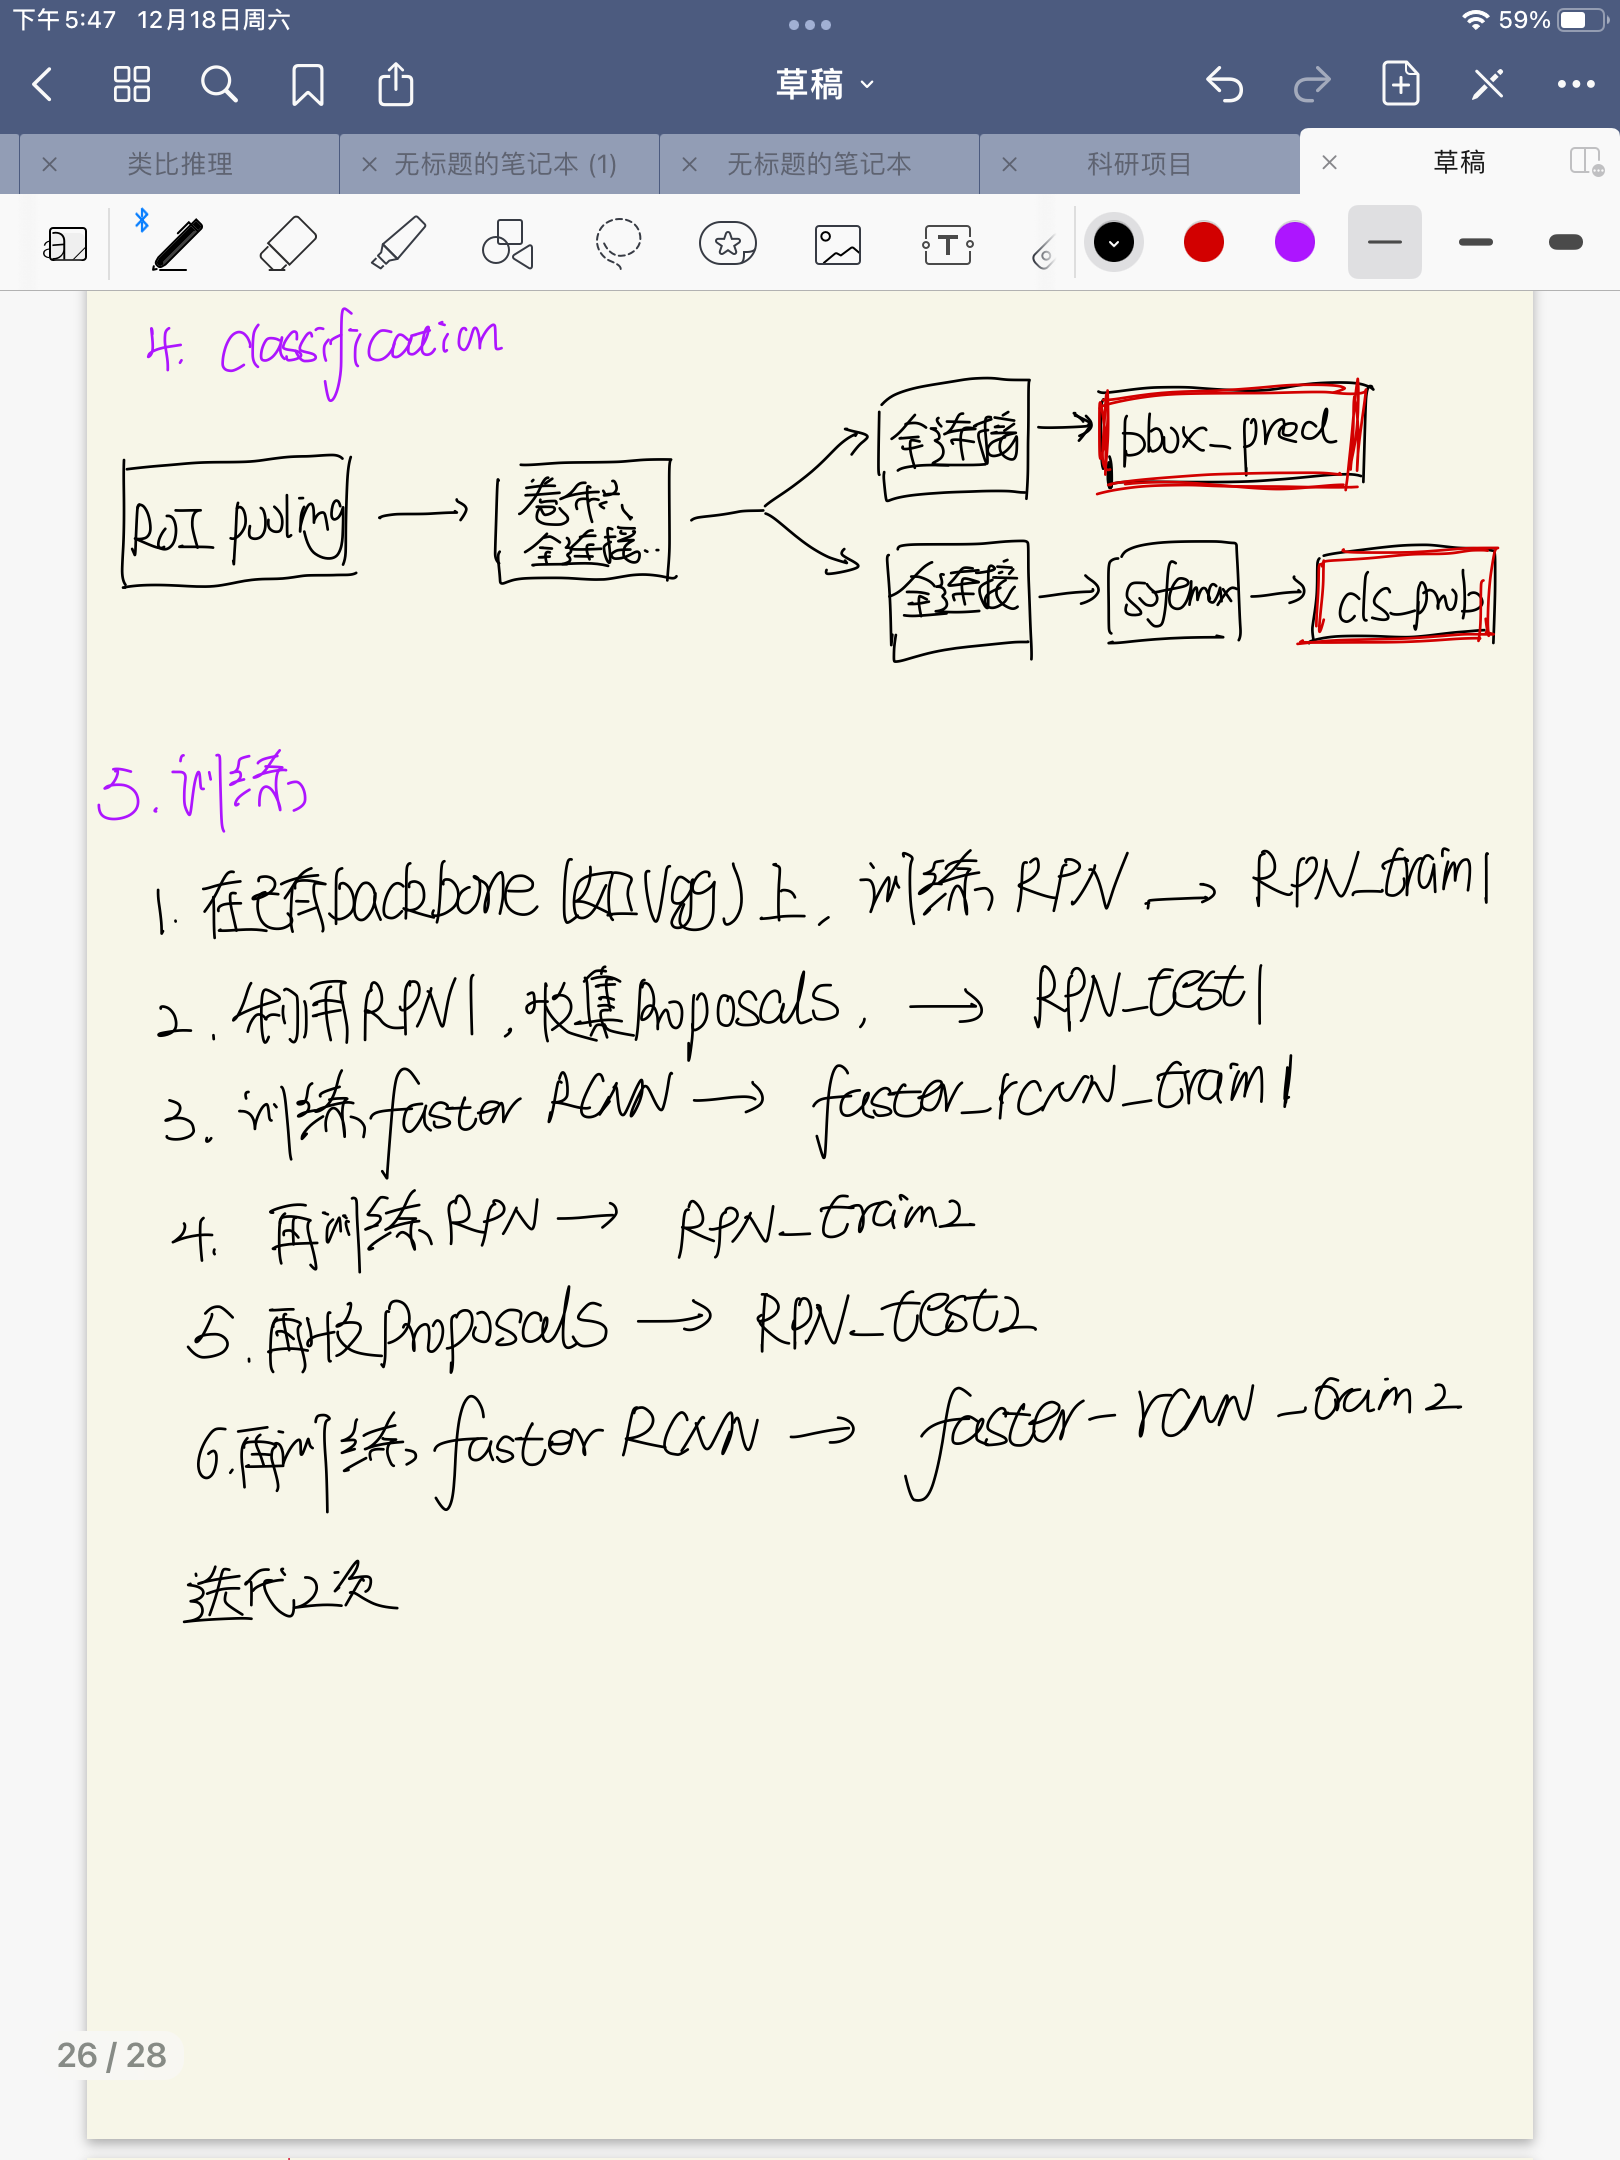 下午5:47 12月18日周六
59%
草稿
类比推理
无标题的笔记本 (1)
无标题的笔记本
科研项目
草稿
4. Classification
RoI pooling
卷积、
全连接..
全连接
bbox_pred
全连接
softmax
cls_prob
5. 训练
1. 在已有backbone (如Vgg) 上, 训练 RPN → RPN_train1
2. 利用RPN1, 收集Proposals, → RPN_test1
3. 训练 faster RCNN → faster_rcnn_train1
4. 再训练 RPN → RPN_train2
5. 再收Proposals → RPN_test2
6. 再训练 faster RCNN → faster_rcnn_train2
迭代2次
26 / 28